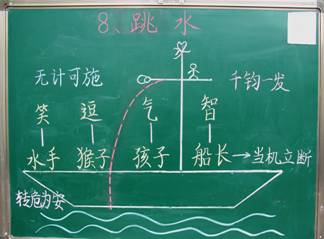 8、跳水
无计可施 千钧一发
笑 逗 气 智
水手 猴子 孩子 船长→当机立断
转危为安